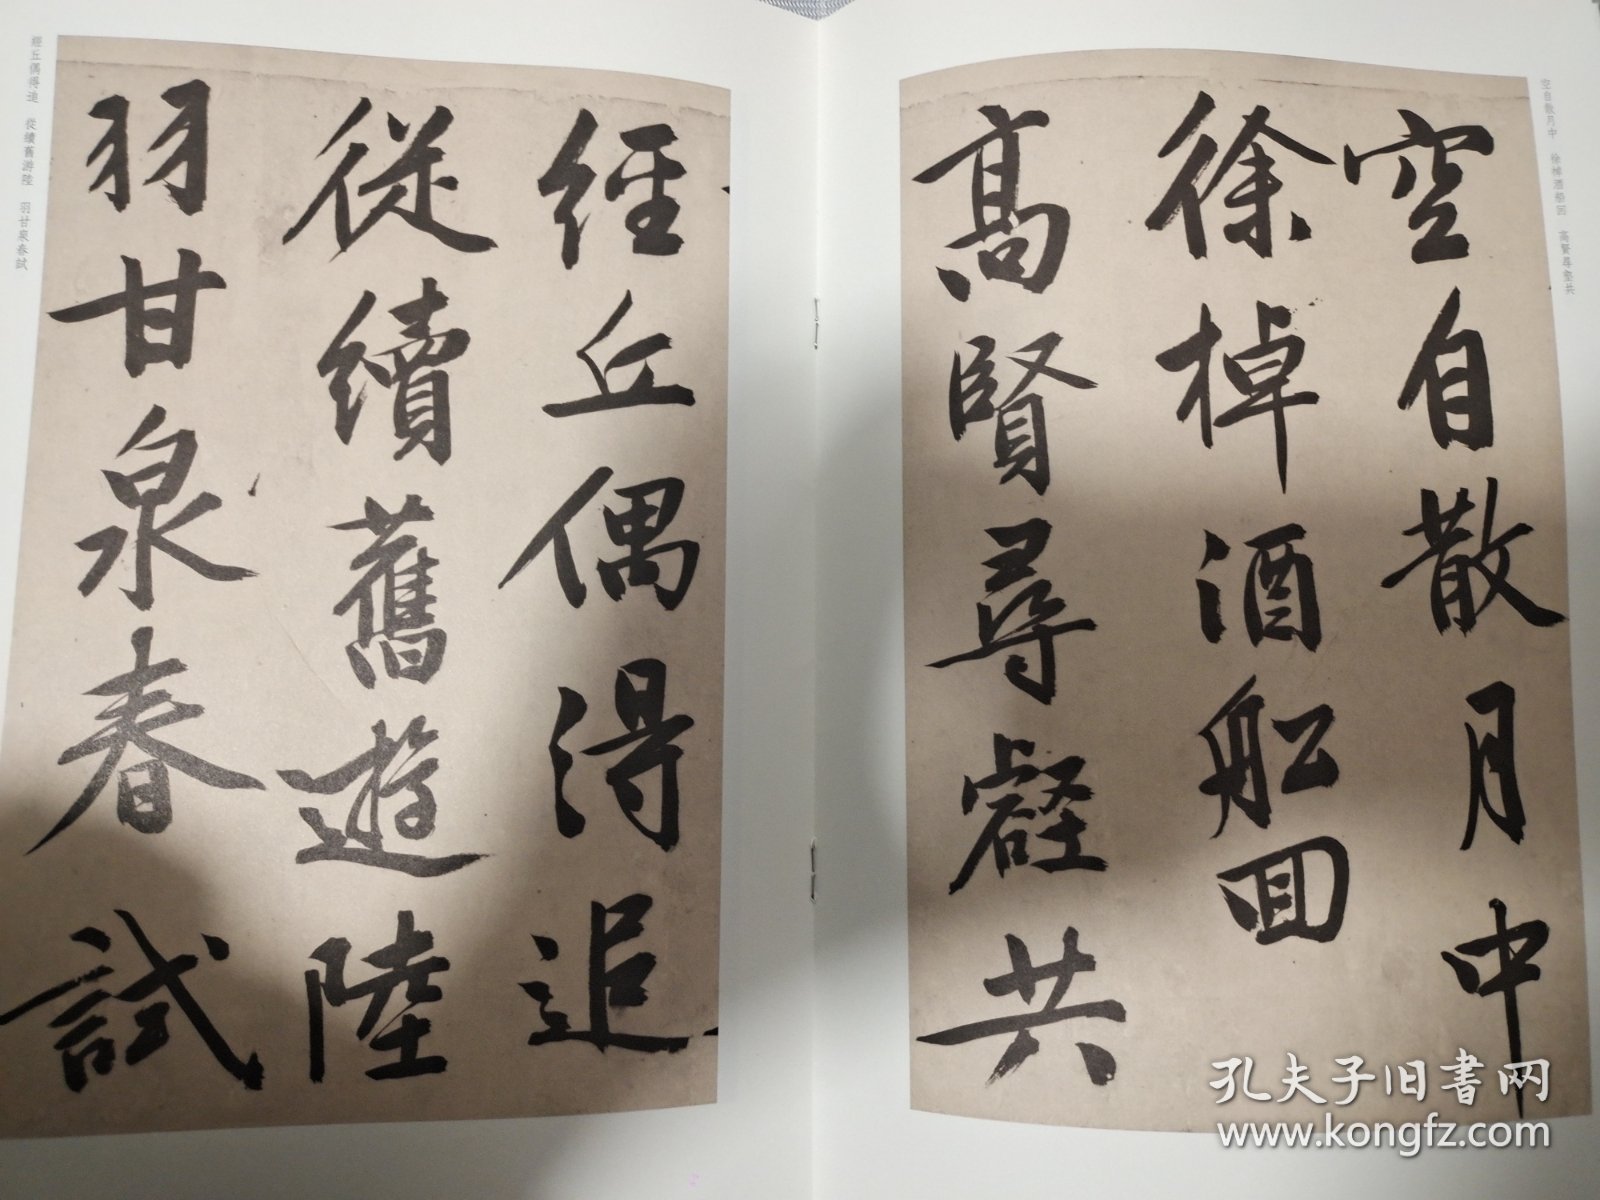 空自散月中
徐棹酒船回
高賢尋壑共
經丘偶得追
從續舊遊陸
羽甘泉春試
空自散月中 徐棹酒船回 高賢尋壑共
經丘偶得追 從續舊游陸 羽甘泉春試
孔夫子旧书网
www.kongfz.com